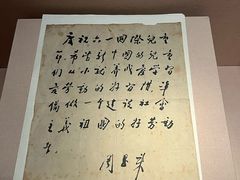 庆祝六一国际儿童
节，希望新中国的儿童
们从小就养成爱学习
爱劳动的好习惯，准
备做一个建设社会
主义祖国的好劳动
者。
周恩来